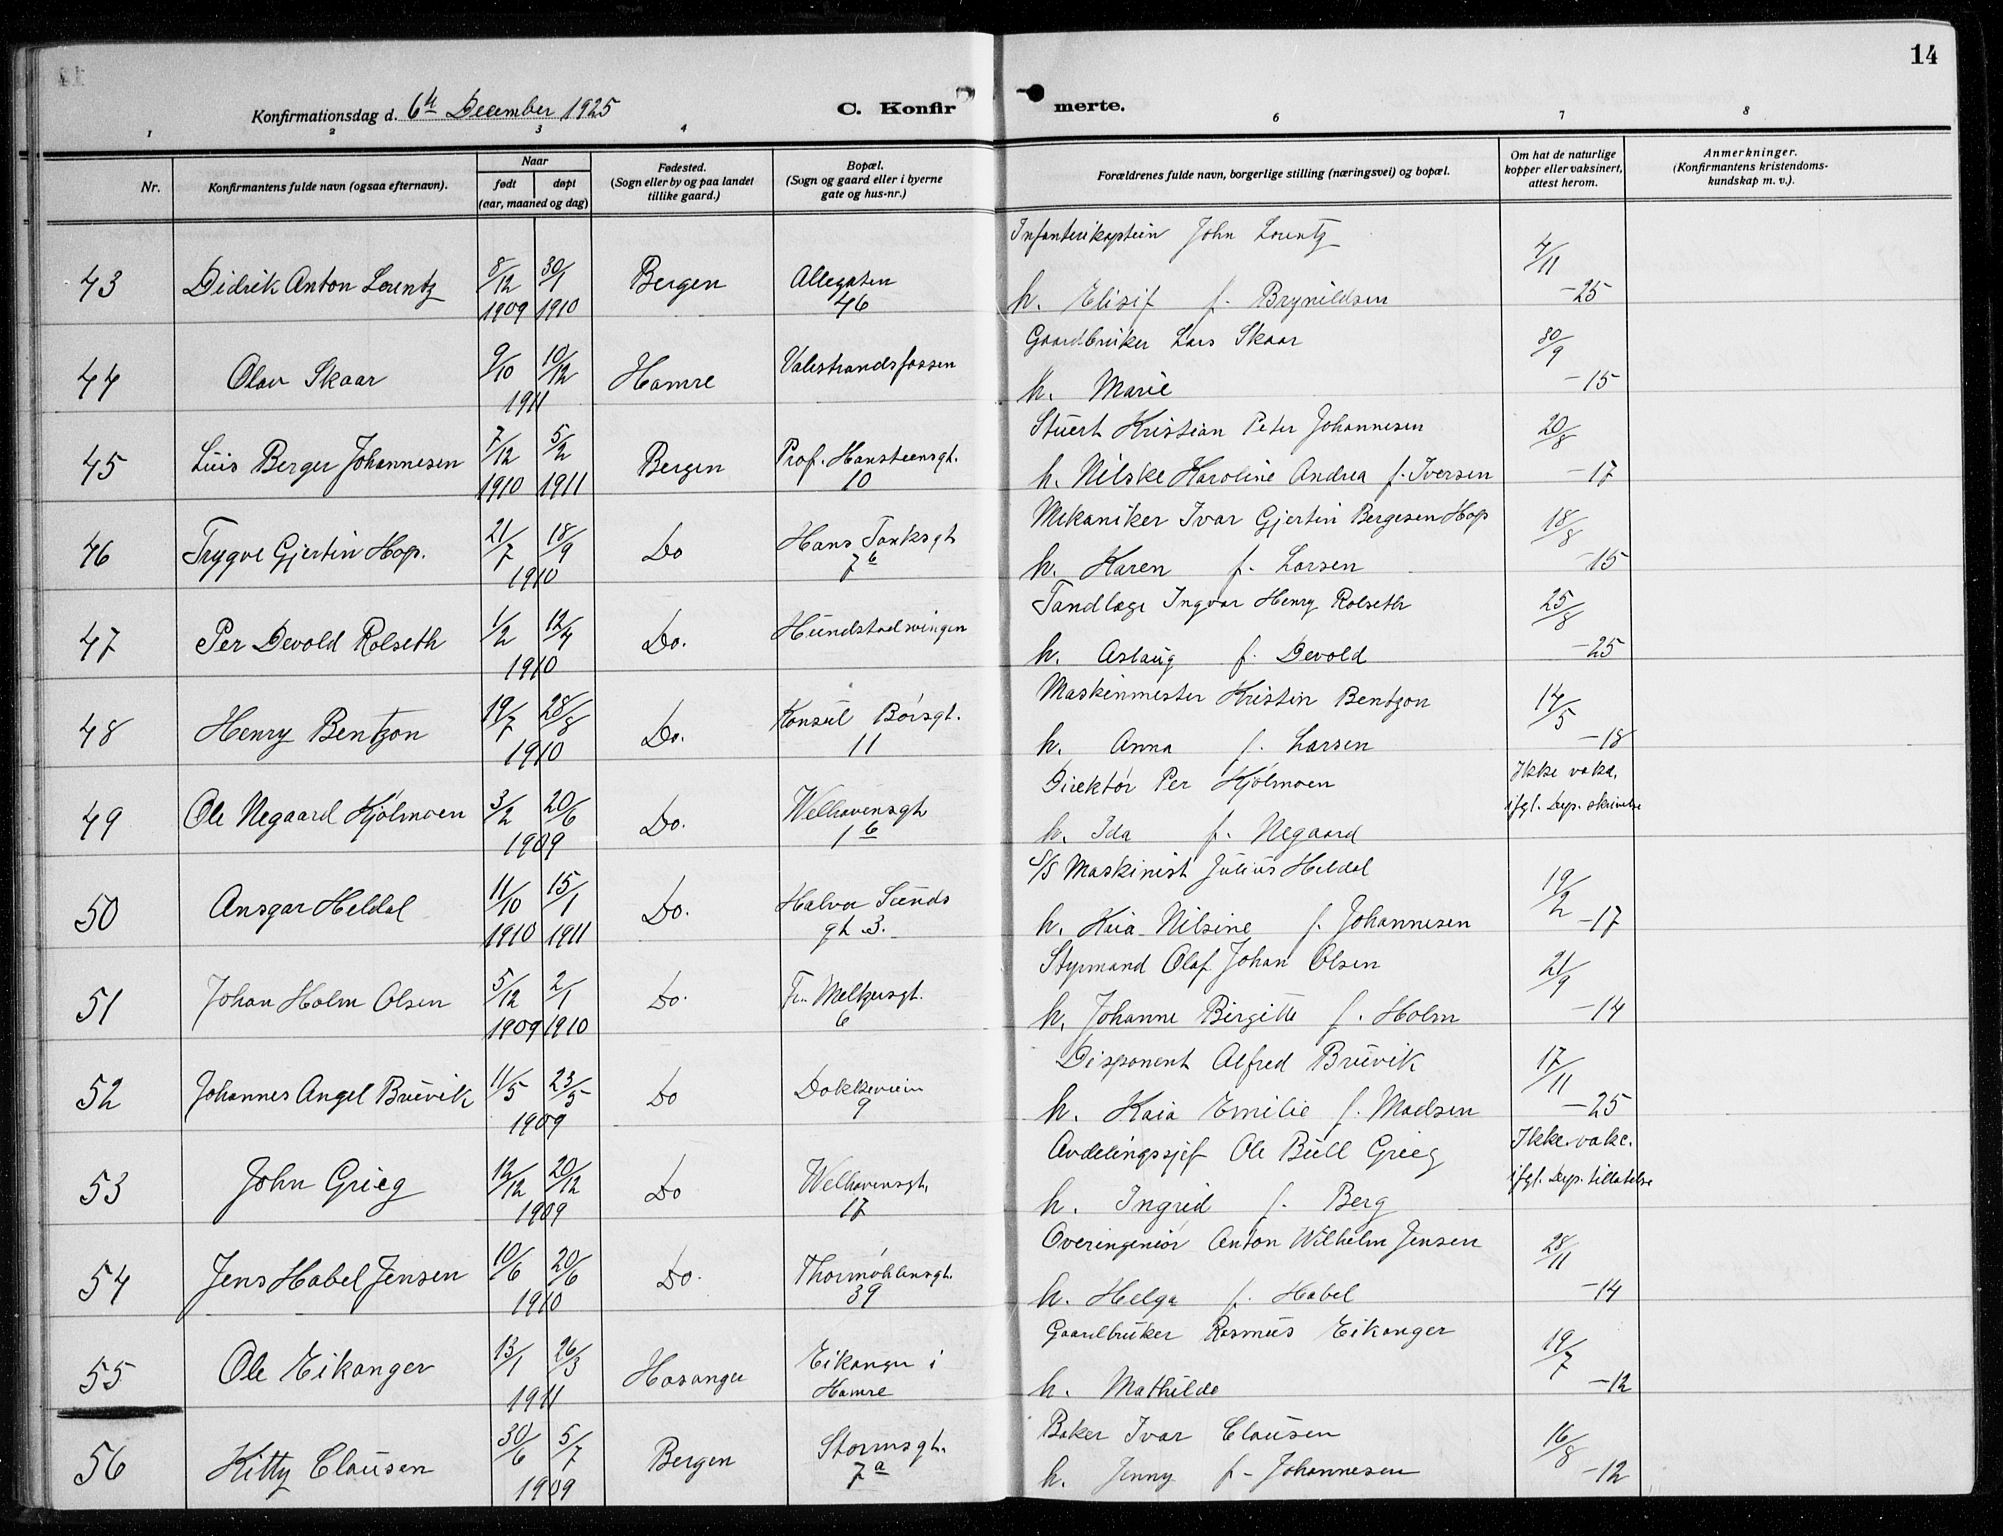 14
Konfirmationsdag d. 6te December 1925
C. Konfirmerte.
1 2 3 4 6 7 8
Nr.
Konfirmantens fulde navn (ogsaa efternavn).
Naar
født døpt
(aar, maaned og dag)
Fødested.
(Sogn eller by og paa landet
tillike gaard.)
Bopæl.
(Sogn og gaard eller i byerne
gate og hus-nr.)
Forældrenes fulde navn, borgerlige stilling (næringsvei) og bopæl.
Om hat de naturlige
kopper eller vaksinert,
attest herom.
Anmerkninger.
(Konfirmantens kristendoms-
kundskap m. v.).
Infanterikaptein John Lorentz
43 Didrik Anton Lorentz 8/12 1909 30/1 1910 Bergen Allegaten 46
h. Elisif f. Brynildsen 4/11 -25
Gaardbruker Lars Skaar
44 Olav Skaar 9/10 10/12 1911 Hamre Valestrandsfossen
h. Marie 30/9 -15
Stuert Kristian Peter Johannesen
45 Luis Berger Johannesen 7/12 1910 5/2 1911 Bergen Prof. Hansteensgt. 10
h. Nilske Karoline Andrea f. Iversen 20/8 -17
Mekaniker Ivar Gjertin Bergesen Hop
46 Trygve Gjertin Hop. 21/7 18/9 1910 Do Hans Tanksgt 7b
h. Karen f. Larsen 18/8 -15
Tandlæge Ingvar Henry Rolseth
47 Per Devold Rolseth 1/2 12/4 1910 Do. Hundstadsvingen
h. Aslaug f. Devold 25/8 -25
Maskinmester Kristin Bentzon
48 Henry Bentzon 19/7 28/8 1910 Do. Konsul Børsgt. 11
h. Anna f. Larsen 14/5 -18
Direktør Per Kjølmoen
49 Ole Negaard Kjølmoen 3/2 20/6 1909 Do. Welhavensgt 1b
h. Ida f. Negaard Ikke vaks. ifgl. Dep. skrivelse
S/S Maskinist Julius Heldal
50 Ansgar Heldal 11/10 1910 15/1 1911 Do. Halvor Sunds gt 3.
h. Kaia Nilsine f. Johannesen 19/2 -17
Styrmand Olaf Johan Olsen
51 Johan Holm Olsen 5/12 1909 2/1 1910 Do. Fr. Meltzersgt. 6
h. Johanne Birgitte f. Holm 21/9 -14
Disponent Alfred Bruvik
52 Johannes Angel Bruvik 11/5 23/5 1909 Do Dokkeveien 9
h. Kaia Emilie f. Madsen 17/11 -25
Avdelingssjef Ole Bull Grieg
53 John Grieg 12/12 20/12 1909 Do Welhavensgt. 17
h. Ingrid f. Berg Ikke vakc. ifgl. Dep. tillatelse
Overingeniør Anton Wilhelm Jensen
54 Jens Habel Jensen 10/6 20/6 1910 Do. Thormøhlensgt. 39
h. Helga f. Habel 28/11 -14
Gaardbruker Rasmus Eikanger
55 Ole Eikanger 13/1 26/3 1911 Hosanger Eikanger i Hamre
h. Mathilde 19/7 -12
Baker Ivar Clausen
56 Kitty Clausen 30/6 5/7 1909 Bergen Stormsgt. 7a
h. Jenny f. Johannesen 16/8 -12